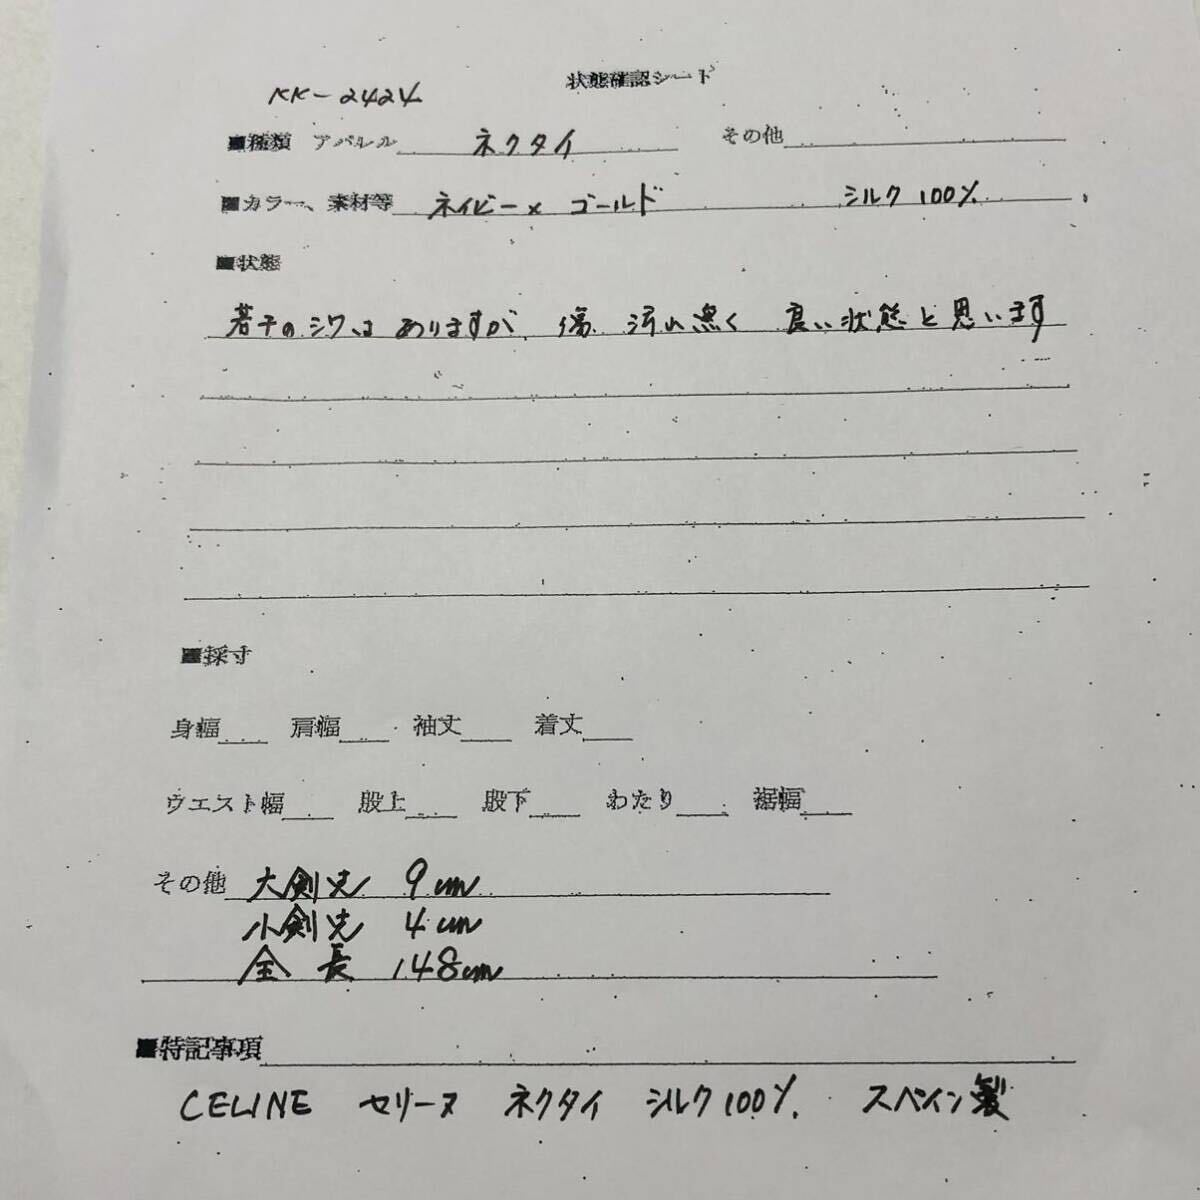 状態確認シート
KK-2424
■種類 アパレル ネクタイ その他
■カラー、素材等 ネイビー× ゴールド シルク100%
■状態
若干のシワはありますが、傷 汚れ無く 良い状態と思います
■採寸
身幅 肩幅 袖丈 着丈
ウエスト幅 股上 股下 わたり 裾幅
その他 大剣先 9cm
小剣先 4cm
全長 148cm
■特記事項
CELINE セリーヌ ネクタイ シルク100%. スペイン製